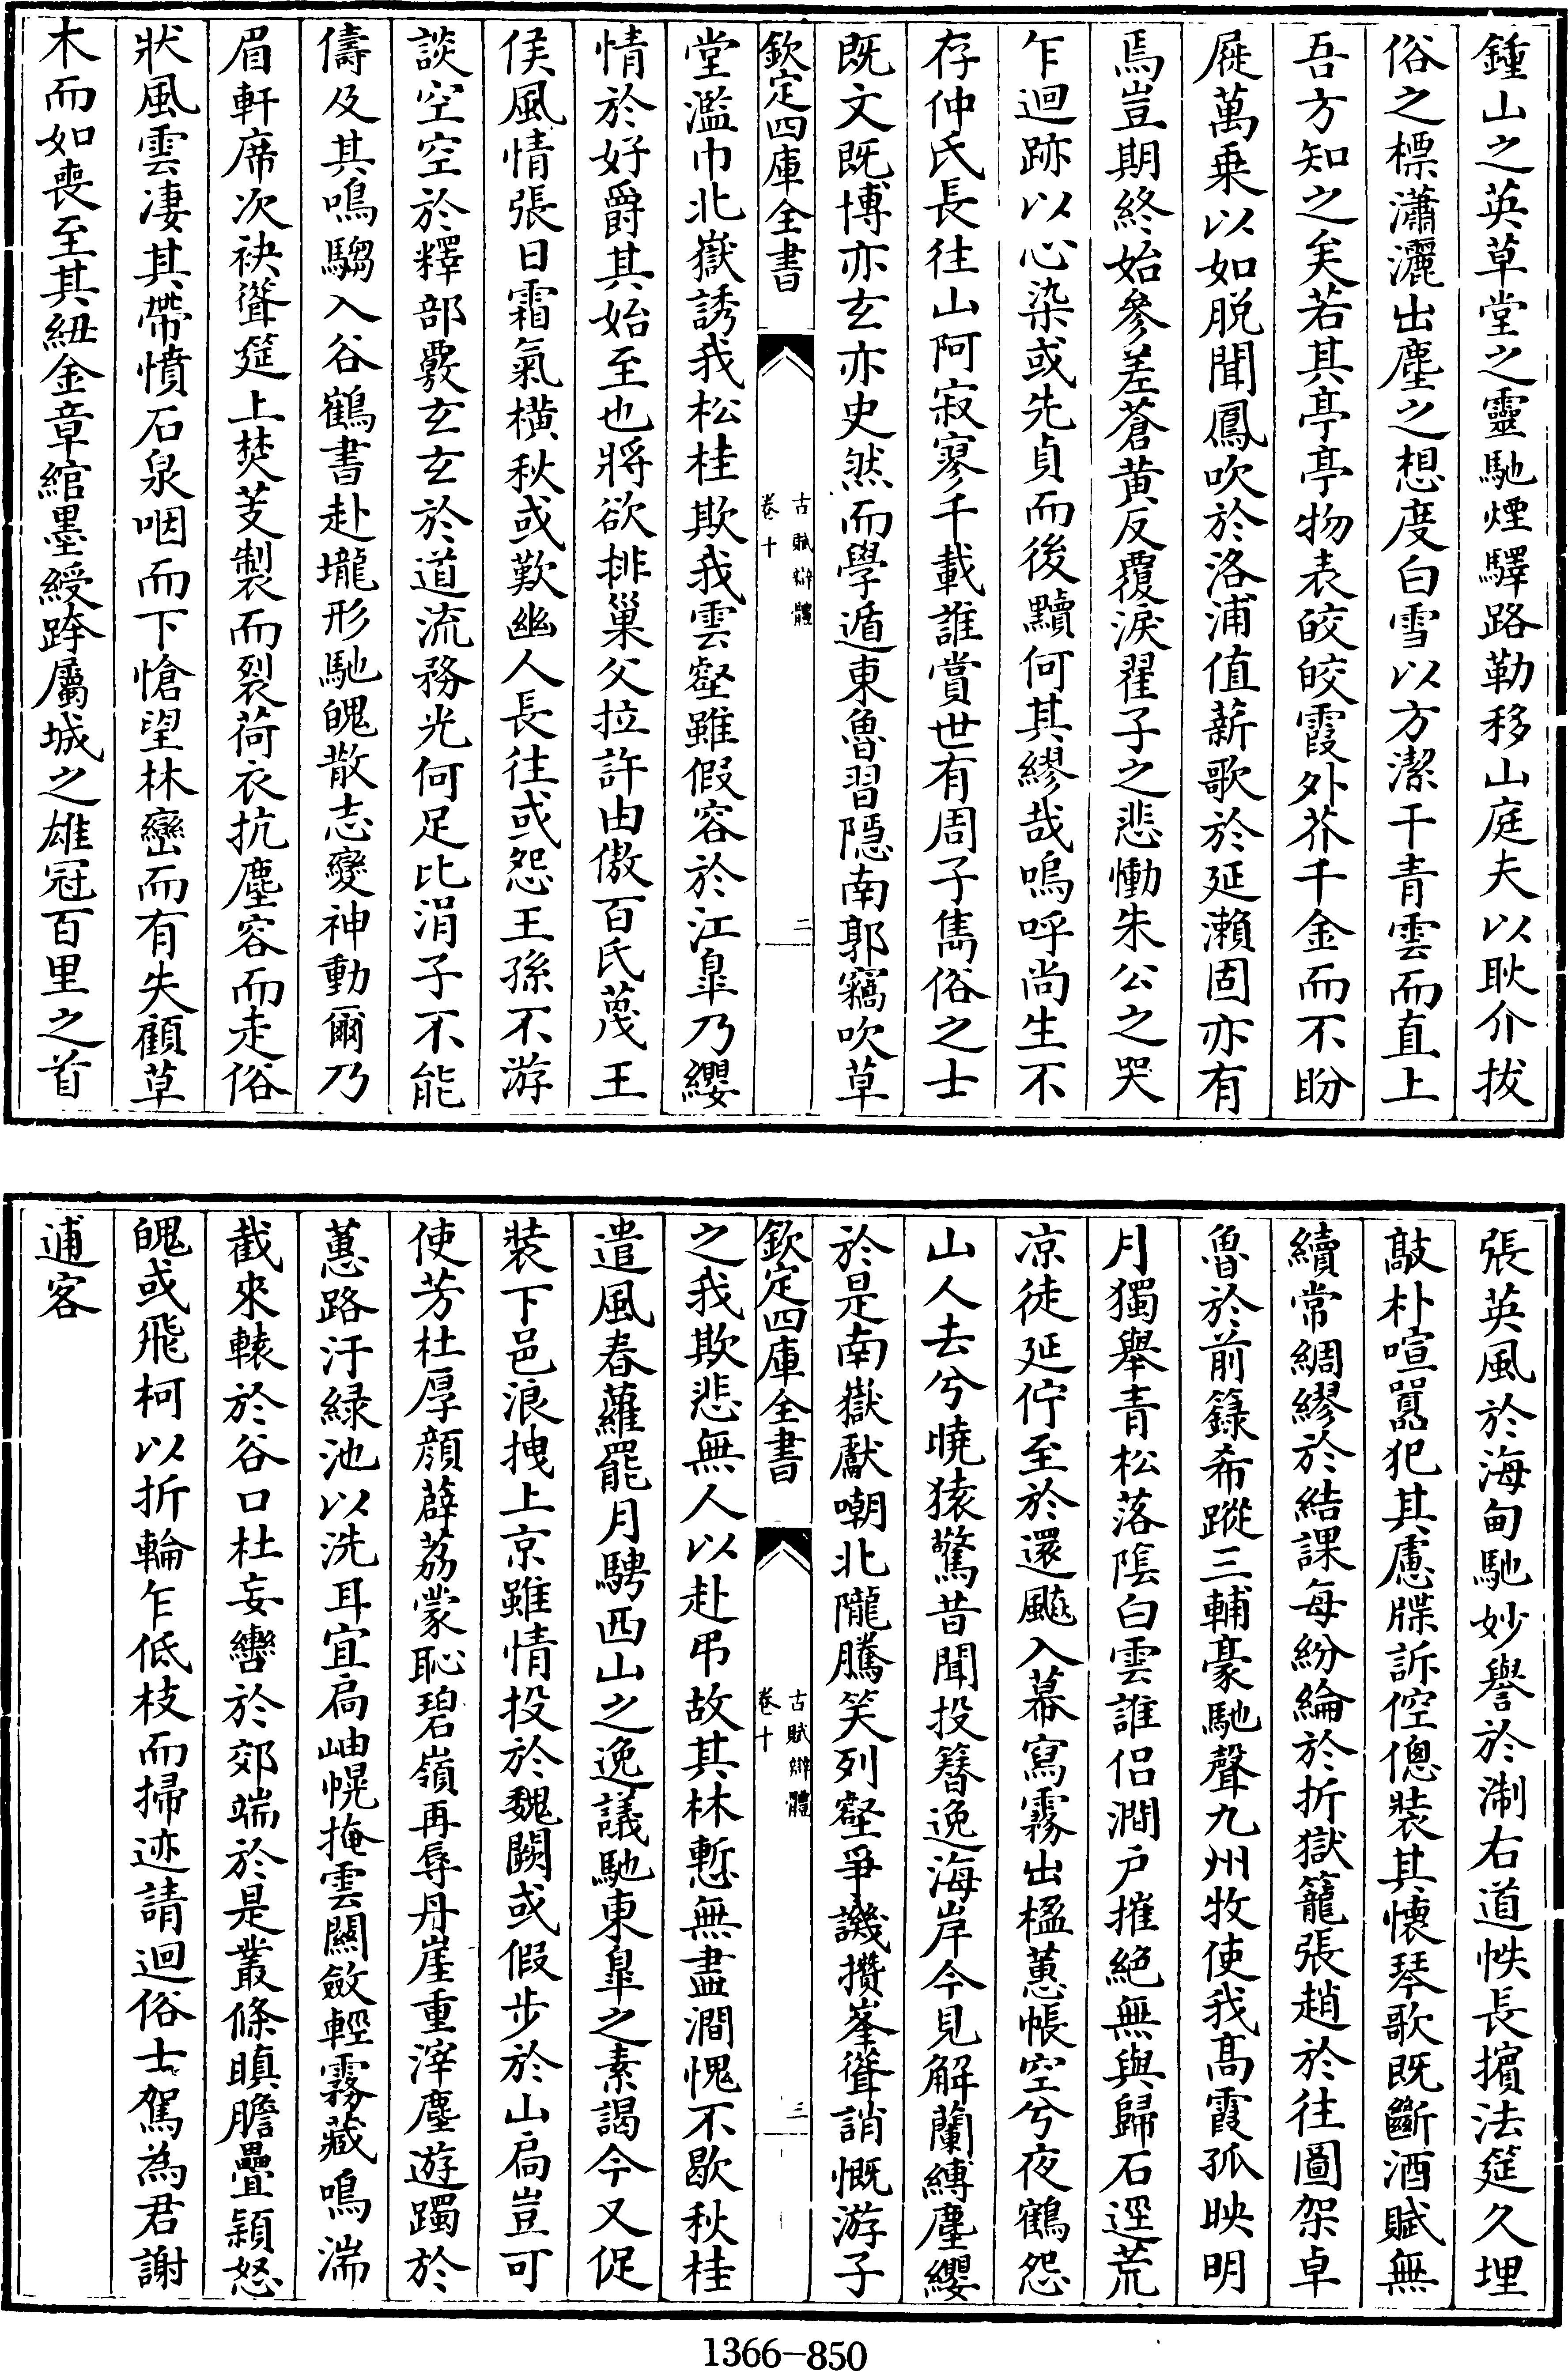 鍾山之英草堂之靈馳煙驛路勒移山庭夫以耿介拔
俗之標瀟灑出塵之想度白雪以方潔干青雲而直上
吾方知之矣若其亭亭物表皎皎霞外芥千金而不盼
屣萬乗以如脱聞鳳吹於洛浦值薪歌於延瀨固亦有
焉豈期終始參差蒼黄反覆淚翟子之悲慟朱公之哭
乍迴跡以心染或先貞而後黷何其繆哉嗚呼尚生不
存仲氏長往山阿寂寥千載誰賞世有周子雋俗之士
既文既博亦玄亦史然而學遁東魯習隱南郭竊吹草
欽定四庫全書
古賦辯體
卷十
二
堂濫巾北嶽誘我松桂欺我雲壑雖假容於江臯乃纓
情於好爵其始至也將欲排巢父拉許由傲百氏蔑王
侯風情張日霜氣橫秋或歎幽人長往或怨王孫不游
談空空於釋部覈玄玄於道流務光何足比涓子不能
儔及其鳴騶入谷鶴書赴壠形馳魄散志變神動爾乃
眉軒席次袂聳筵上焚芰製而裂荷衣抗塵容而走俗
狀風雲凄其帶憤石泉咽而下愴望林巒而有失顧草
木而如喪至其紐金章綰墨綬跨屬城之雄冠百里之首
張英風於海甸馳妙譽於淛右道帙長擯法筵久埋
敲朴喧囂犯其慮牒訴倥傯裝其懷琴歌既斷酒賦無
續常綢繆於結課每紛綸於折獄籠張趙於往圖架卓
魯於前籙希蹤三輔豪馳聲九州牧使我髙霞孤映明
月獨舉青松落隂白雲誰侣澗户摧絶無與歸石逕荒
凉徒延佇至於還飈入幕寫霧出楹蕙帳空兮夜鶴怨
山人去兮曉猿驚昔聞投簪逸海岸今見解蘭縛塵纓
於是南嶽獻嘲北隴騰笑列壑爭譏攢峯聳誚慨游子
欽定四庫全書
古賦辯體
卷十
三
之我欺悲無人以赴弔故其林慙無盡澗愧不歇秋桂
遣風春蘿罷月騁西山之逸議馳東臯之素謁今又促
裝下邑浪拽上京雖情投於魏闕或假步於山扃豈可
使芳杜厚顔薜荔蒙恥碧嶺再辱丹崖重滓塵遊躅於
蕙路汙緑池以洗耳宜扃岫幌掩雲關斂輕霧藏鳴湍
截來轅於谷口杜妄轡於郊端於是叢條瞋膽疊穎怒
魄或飛柯以折輪乍低枝而掃迹請迴俗士駕為君謝
逋客
1366-850